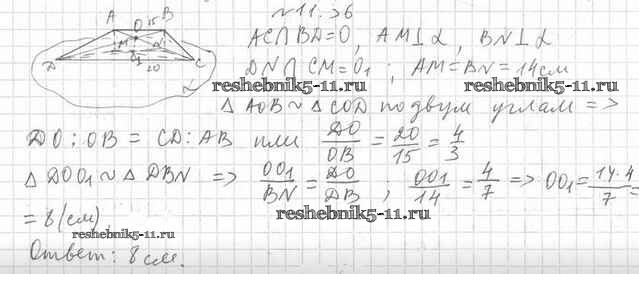 №11.36
A B O 15 M N O₁ D 20 C α
AC∩BD=O, AM⊥α, BN⊥α
DN∩CM=O₁ ; AM=BN=14см
reshebnik5-11.ru reshebnik5-11.ru
△AOB∾△COD по двум углам =>
DO:OB = CD:AB или DO/OB = 20/15 = 4/3
△DOO₁∾△DBN => OO₁/BN = DO/DB ; OO₁/14 = 4/7 => OO₁ = 14·4/7 =
reshebnik5-11.ru
= 8(см)
reshebnik5-11.ru
Ответ: 8см.